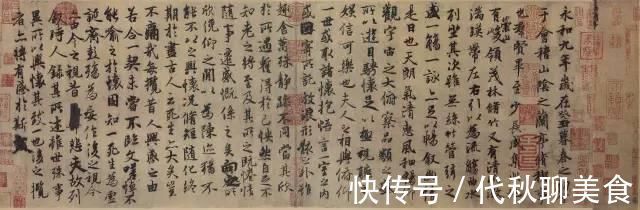 永和九年歲在癸丑暮春之初會
于會稽山陰之蘭亭脩稧事
也羣賢畢至少長咸集此地
有崇山峻領茂林脩竹又有清流激
湍暎帶左右引以為流觴曲水
列坐其次雖無絲竹管弦之
盛一觴一詠亦足以暢敘幽情
是日也天朗氣清惠風和暢仰
觀宇宙之大俯察品類之盛
所以遊目騁懷足以極視聽之
娛信可樂也夫人之相與俯仰
一世或取諸懷抱悟言一室之內
或因寄所託放浪形骸之外雖
趣舍萬殊靜躁不同當其欣
於所遇蹔得於己怏然自足不
知老之將至及其所之既惓情
隨事遷感慨係之矣向之所
欣俛仰之閒以為陳迹猶不
能不以之興懷況脩短隨化終
期於盡古人云死生亦大矣豈
不痛哉每攬昔人興感之由
若合一契未嘗不臨文嗟悼不
能喻之於懷固知一死生為虛
誕齊彭殤為妄作後之視今
亦由今之視昔悲夫故列
敘時人錄其所述雖世殊事
異所以興懷其致一也後之攬
者亦將有感於斯
快传号/代秋聊美食